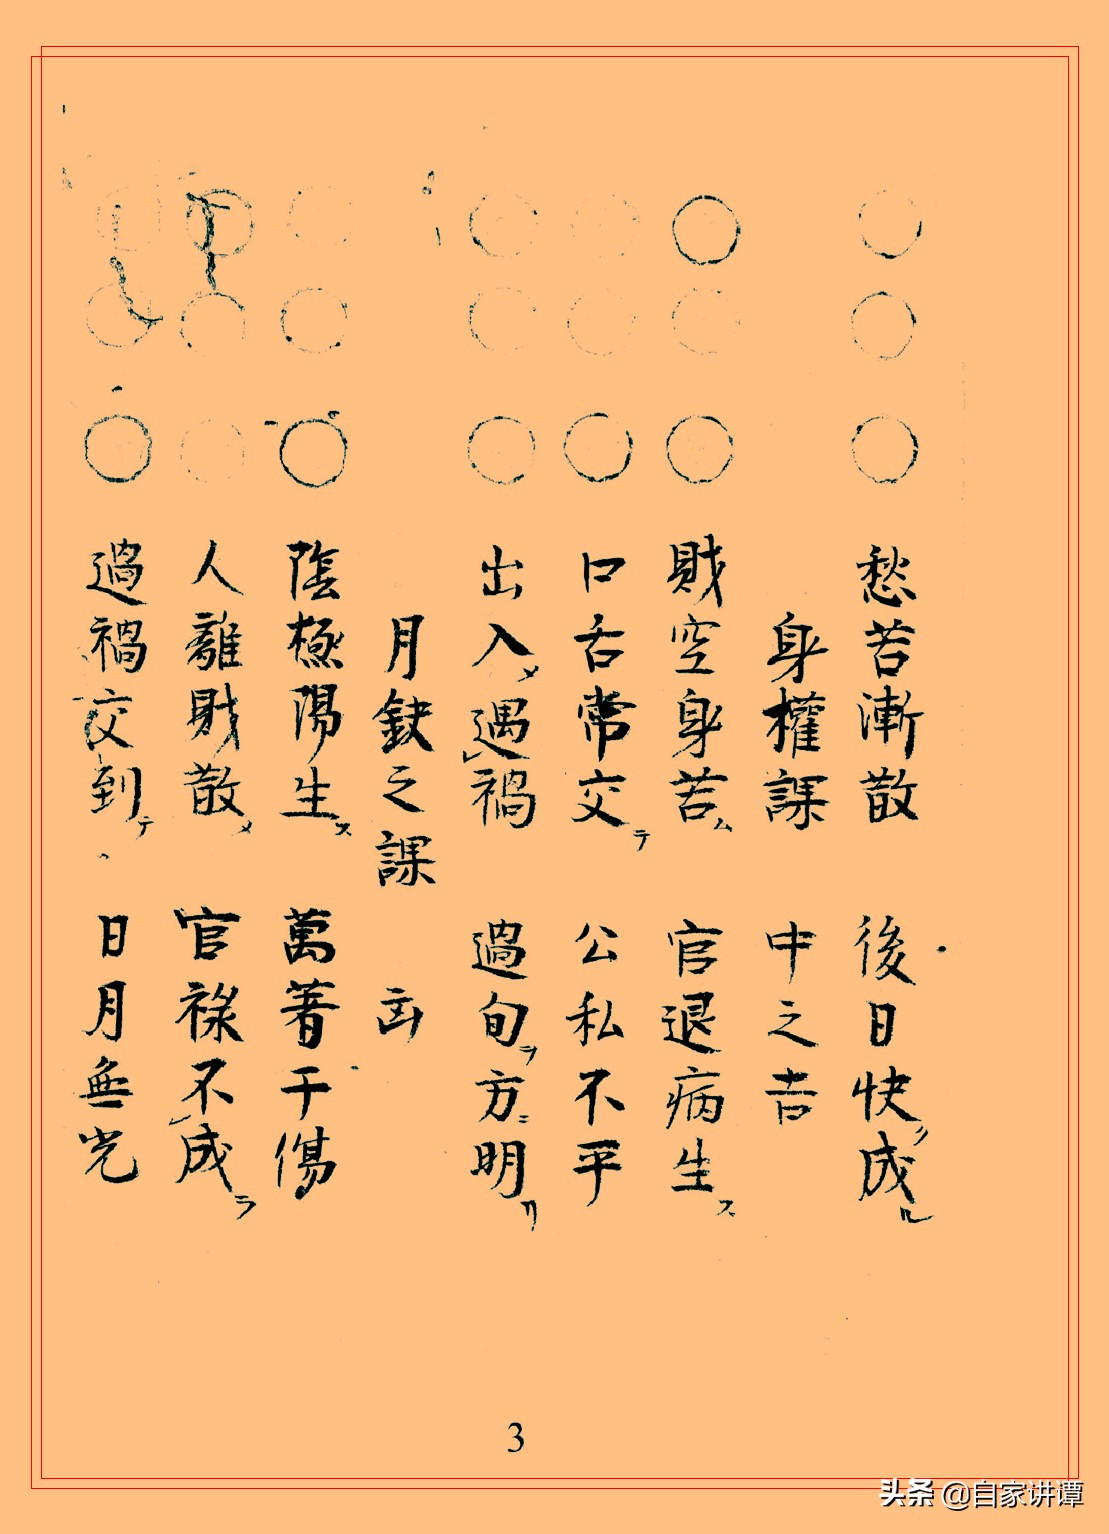 愁苦漸散 後日快成ル
身權課 中之吉
財空身苦ム 官退病生ス
口舌常交テ 公私不平
出入メ遇禍 過旬ヲ方ニ明リ
月鈌之課 凶
陰極陽生ス 萬著干傷
人離財散メ 官禄不成ラ
過禍交到テ 日月無光
3
头条 @自家讲谭